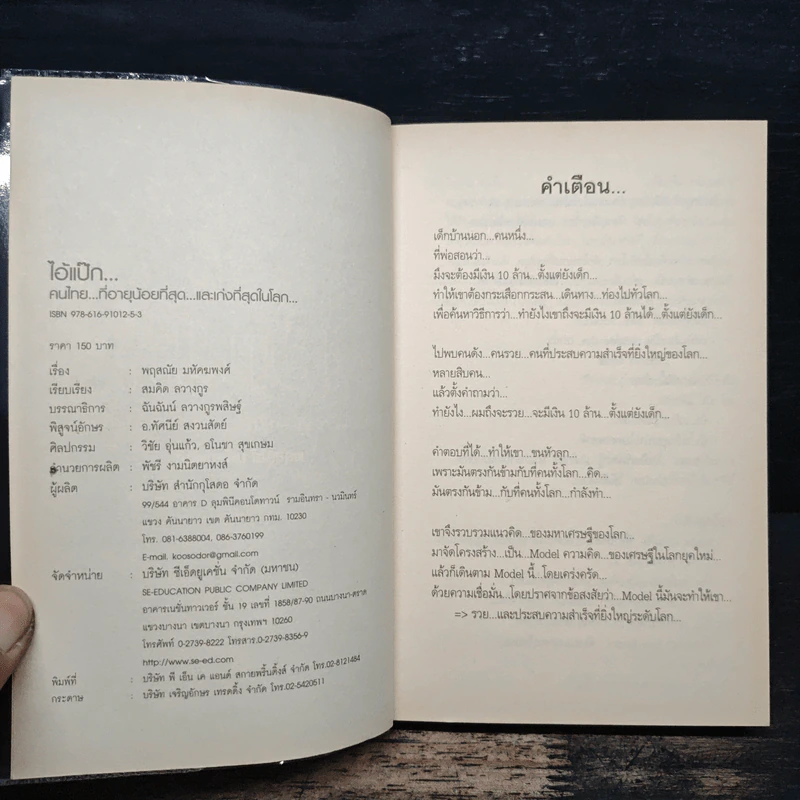 ไอ้แป๊ก...
คนไทย...ที่อายุน้อยที่สุด...และเก่งที่สุดในโลก...
ISBN 978-616-91012-5-3
ราคา 150 บาท
เรื่อง : พฤสณัย มหัคฆพงศ์
เรียบเรียง : สมคิด ลวางกูร
บรรณาธิการ : ฉันฉันน์ ลวางกูรพสิษฐ์
พิสูจน์อักษร : อ.ทัศนีย์ สงวนสัตย์
ศิลปกรรม : วิชัย อุ่นแก้ว, อโนชา สุขเกษม
อำนวยการผลิต : พัชรี งามนิตยาหงส์
ผู้ผลิต : บริษัท สำนักกูโสดอ จำกัด
99/544 อาคาร D ลุมพินีคอนโดทาวน์ รามอินทรา - นวมินทร์
แขวง คันนายาว เขต คันนายาว กทม. 10230
โทร. 081-6388004, 086-3760199
E-mail. koosodor@gmail.com
จัดจำหน่าย : บริษัท ซีเอ็ดยูเคชั่น จำกัด (มหาชน)
SE-EDUCATION PUBLIC COMPANY LIMITED
อาคารเนชั่นทาวเวอร์ ชั้น 19 เลขที่ 1858/87-90 ถนนบางนา-ตราด
แขวงบางนา เขตบางนา กรุงเทพฯ 10260
โทรศัพท์ 0-2739-8222 โทรสาร.0-2739-8356-9
http://www.se-ed.com
พิมพ์ที่ : บริษัท พี เอ็น เค แอนด์ สกายพริ้นติ้งส์ จำกัด โทร.02-8121484
กระดาษ : บริษัท เจริญอักษร เทรดดิ้ง จำกัด โทร.02-5420511
คำเตือน...
เด็กบ้านนอก...คนหนึ่ง...
ที่พ่อสอนว่า...
มึงจะต้องมีเงิน 10 ล้าน...ตั้งแต่ยังเด็ก...
ทำให้เขาต้องกระเสือกกระสน...เดินทาง...ท่องไปทั่วโลก...
เพื่อค้นหาวิธีการว่า...ทำยังไงเขาถึงจะมีเงิน 10 ล้านได้...ตั้งแต่ยังเด็ก...
ไปพบคนดัง...คนรวย...คนที่ประสบความสำเร็จที่ยิ่งใหญ่ของโลก...
หลายสิบคน...
แล้วตั้งคำถามว่า...
ทำยังไง...ผมถึงจะรวย...จะมีเงิน 10 ล้าน...ตั้งแต่ยังเด็ก...
คำตอบที่ได้...ทำให้เขา...ขนหัวลุก...
เพราะมันตรงกันข้ามกับที่คนทั้งโลก...คิด...
มันตรงกันข้าม...กับที่คนทั้งโลก...กำลังทำ...
เขาจึงรวบรวมแนวคิด...ของมหาเศรษฐีของโลก...
มาจัดโครงสร้าง...เป็น...Model ความคิด...ของเศรษฐีในโลกยุคใหม่...
แล้วก็เดินตาม Model นี้...โดยเคร่งครัด...
ด้วยความเชื่อมั่น...โดยปราศจากข้อสงสัยว่า...Model นี้มันจะทำให้เขา...
=> รวย...และประสบความสำเร็จที่ยิ่งใหญ่ระดับโลก...